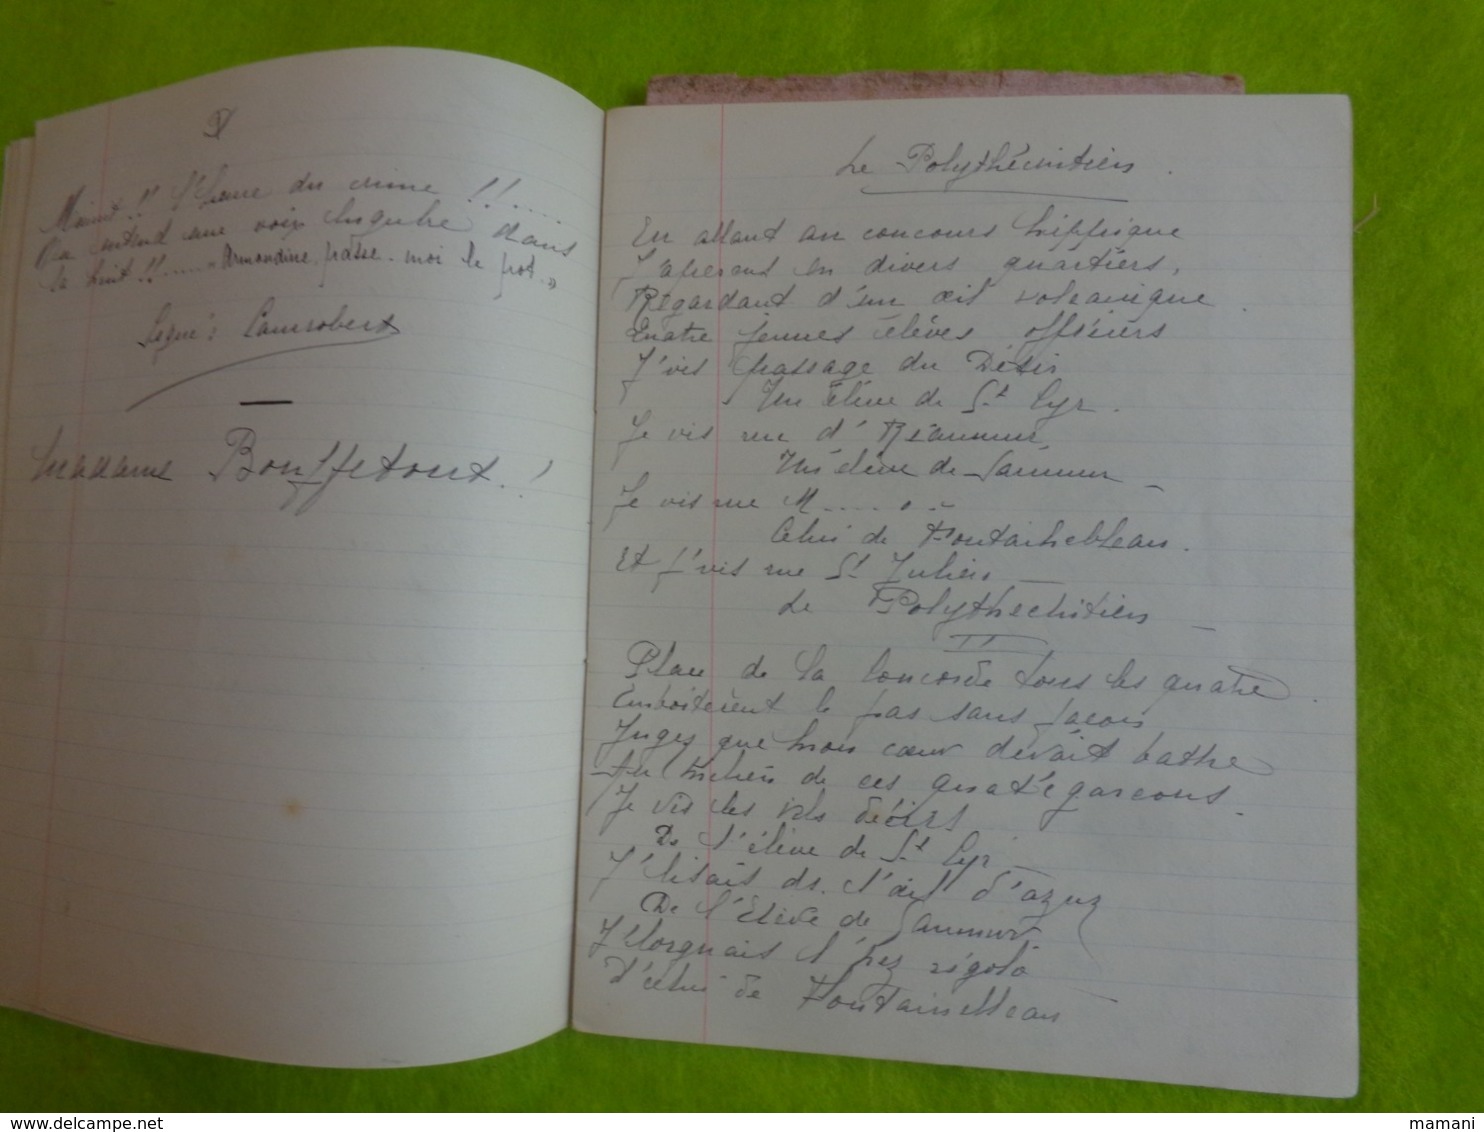 Minuit!! L'heure du crime!!....
On entend une voix lugubre dans
la nuit!!..... "Armandine, passe-moi le pot."
Signé: Canrobert
Madame Bouffetout!
Le Polythécnitien.
En allant au concours hippique
J'aperçus en divers quartiers,
Regardant d'un œil volcanique
Quatre jeunes élèves officiers
J'vis passage du Désir
Un élève de St Cyr.
Je vis rue d'Réaumur
Un élève de Saumur –
Je vis rue M.......
Celui de Fontainebleau.
Et j'vis rue St Julien –
Le Polythechnitien –
II
Place de la Concorde tous les quatre
Emboîtèrent le pas sans façons
Jugez que mon cœur devait battre
Au milieu de ces quat'e garçons.
Je vis les désirs
De l'élève de St Cyr –
J'lisais ds. l'œil d'azur
De l'Elève de Saumur.
J'lorgnais l'nez rigolo
D'celui de Fontainebleau
www.delcampe.net
mamani